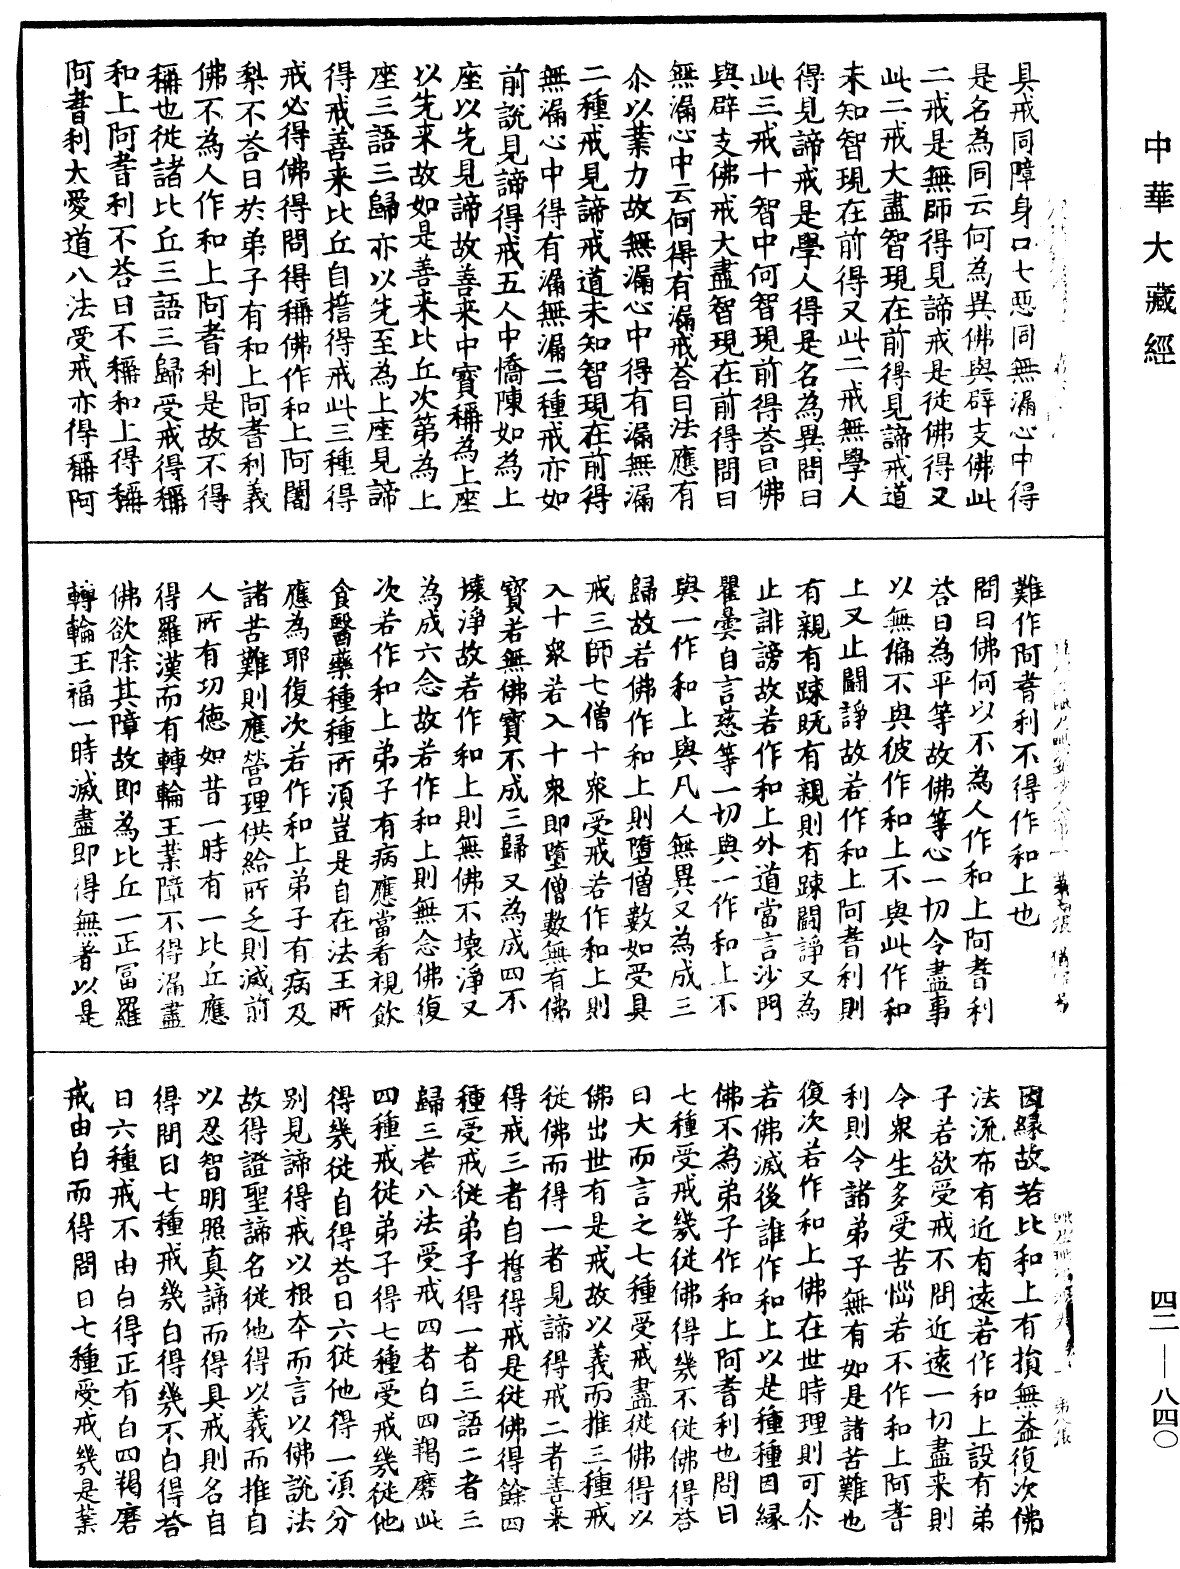 中華大藏經
具戒同障身口七惡同無漏心中得
是名為同云何為異佛與辟支佛此
二戒是無師得見諦戒是從佛得又
此二戒大盡智現在前得見諦戒道
未知智現在前得又此二戒無學人
得見諦戒是學人得是名為異問曰
此三戒十智中何智現前得荅曰佛
與辟支佛戒大盡智現在前得問曰
無漏心中云何得有漏戒荅曰法應有
尒以業力故無漏心中得有漏無漏
二種戒見諦戒道未知智現在前得
無漏心中得有漏無漏二種戒亦如
前說見諦得戒五人中憍陳如為上
座以先見諦故善来中寶稱為上座
以先来故如是善来比丘次第為上
座三語三歸亦以先至為上座見諦
得戒善来比丘自擔得戒此三種得
戒必得佛得問得稱佛作和上阿闍
梨不荅曰於弟子有和上阿耆利義
佛不為人作和上阿耆利是故不得
稱也從諸比丘三語三歸受戒得稱
和上阿耆利不荅曰不稱和上得稱
阿耆利大愛道八法受戒亦得稱阿
難作阿耆利不得作和上也
問曰佛何以不為人作和上阿耆利
荅曰為平等故佛等心一切令盡事
以無偏不與彼作和上不與此作和
上又止鬬諍故若作和上阿耆利則
有親有踈既有親則有踈鬬諍又為
止誹謗故若作和上外道當言沙門
瞿曇自言慈等一切與一作和上不
與一作和上與凡人無異又為成三
歸故若佛作和上則墮僧數如受具
戒三師七僧十衆受戒若作和上則
入十衆若入十衆即墮僧數無有佛
寶若無佛寶不成三歸又為成四不
壞淨故若作和上則無佛不壞淨又
為成六念故若作和上則無念佛復
次若作和上弟子有病應當看視飲
食醫藥種種所須豈是自在法王所
應為耶復次若作和上弟子有病及
諸苦難則應營理供給所乏則減前
人所有功德如昔一時有一比丘應
得羅漢而有轉輪王業障不得漏盡
佛欲除其障故即為比丘一正冨羅
轉輪王福一時滅盡即得無著以是
因緣故若比和上有損無益復次佛
法流布有近有遠若作和上設有弟
子若欲受戒不問近遠一切盡来則
令衆生多受苦惱若不作和上阿耆
利則令諸弟子無有如是諸苦難也
復次若作和上佛在世時理則可尒
若佛滅後誰作和上以是種種因緣
佛不為弟子作和上阿耆利也問曰
七種受戒幾從佛得幾不從佛得荅
曰大而言之七種受戒盡從佛得以
佛出世有是戒故以義而推三種戒
從佛而得一者見諦得戒二者善来
得戒三者自擔得戒是從佛得餘四
種受戒從弟子得一者三語二者三
歸三者八法受戒四者白四羯磨此
四種戒從弟子得七種受戒幾從他
得幾從自得荅曰六從他得一須分
別見諦得戒以根夲而言以佛說法
故得證聖諦名從他得以義而推自
以忍智明照真諦而得具戒則名自
得問曰七種戒幾白得幾不白得荅
曰六種戒不由白得正有白四羯磨
戒由白而得問曰七種受戒幾是業
四二—八四〇